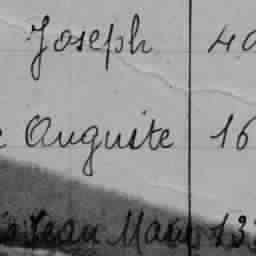 Joseph 40
Auguste 16
Jean Marie 13